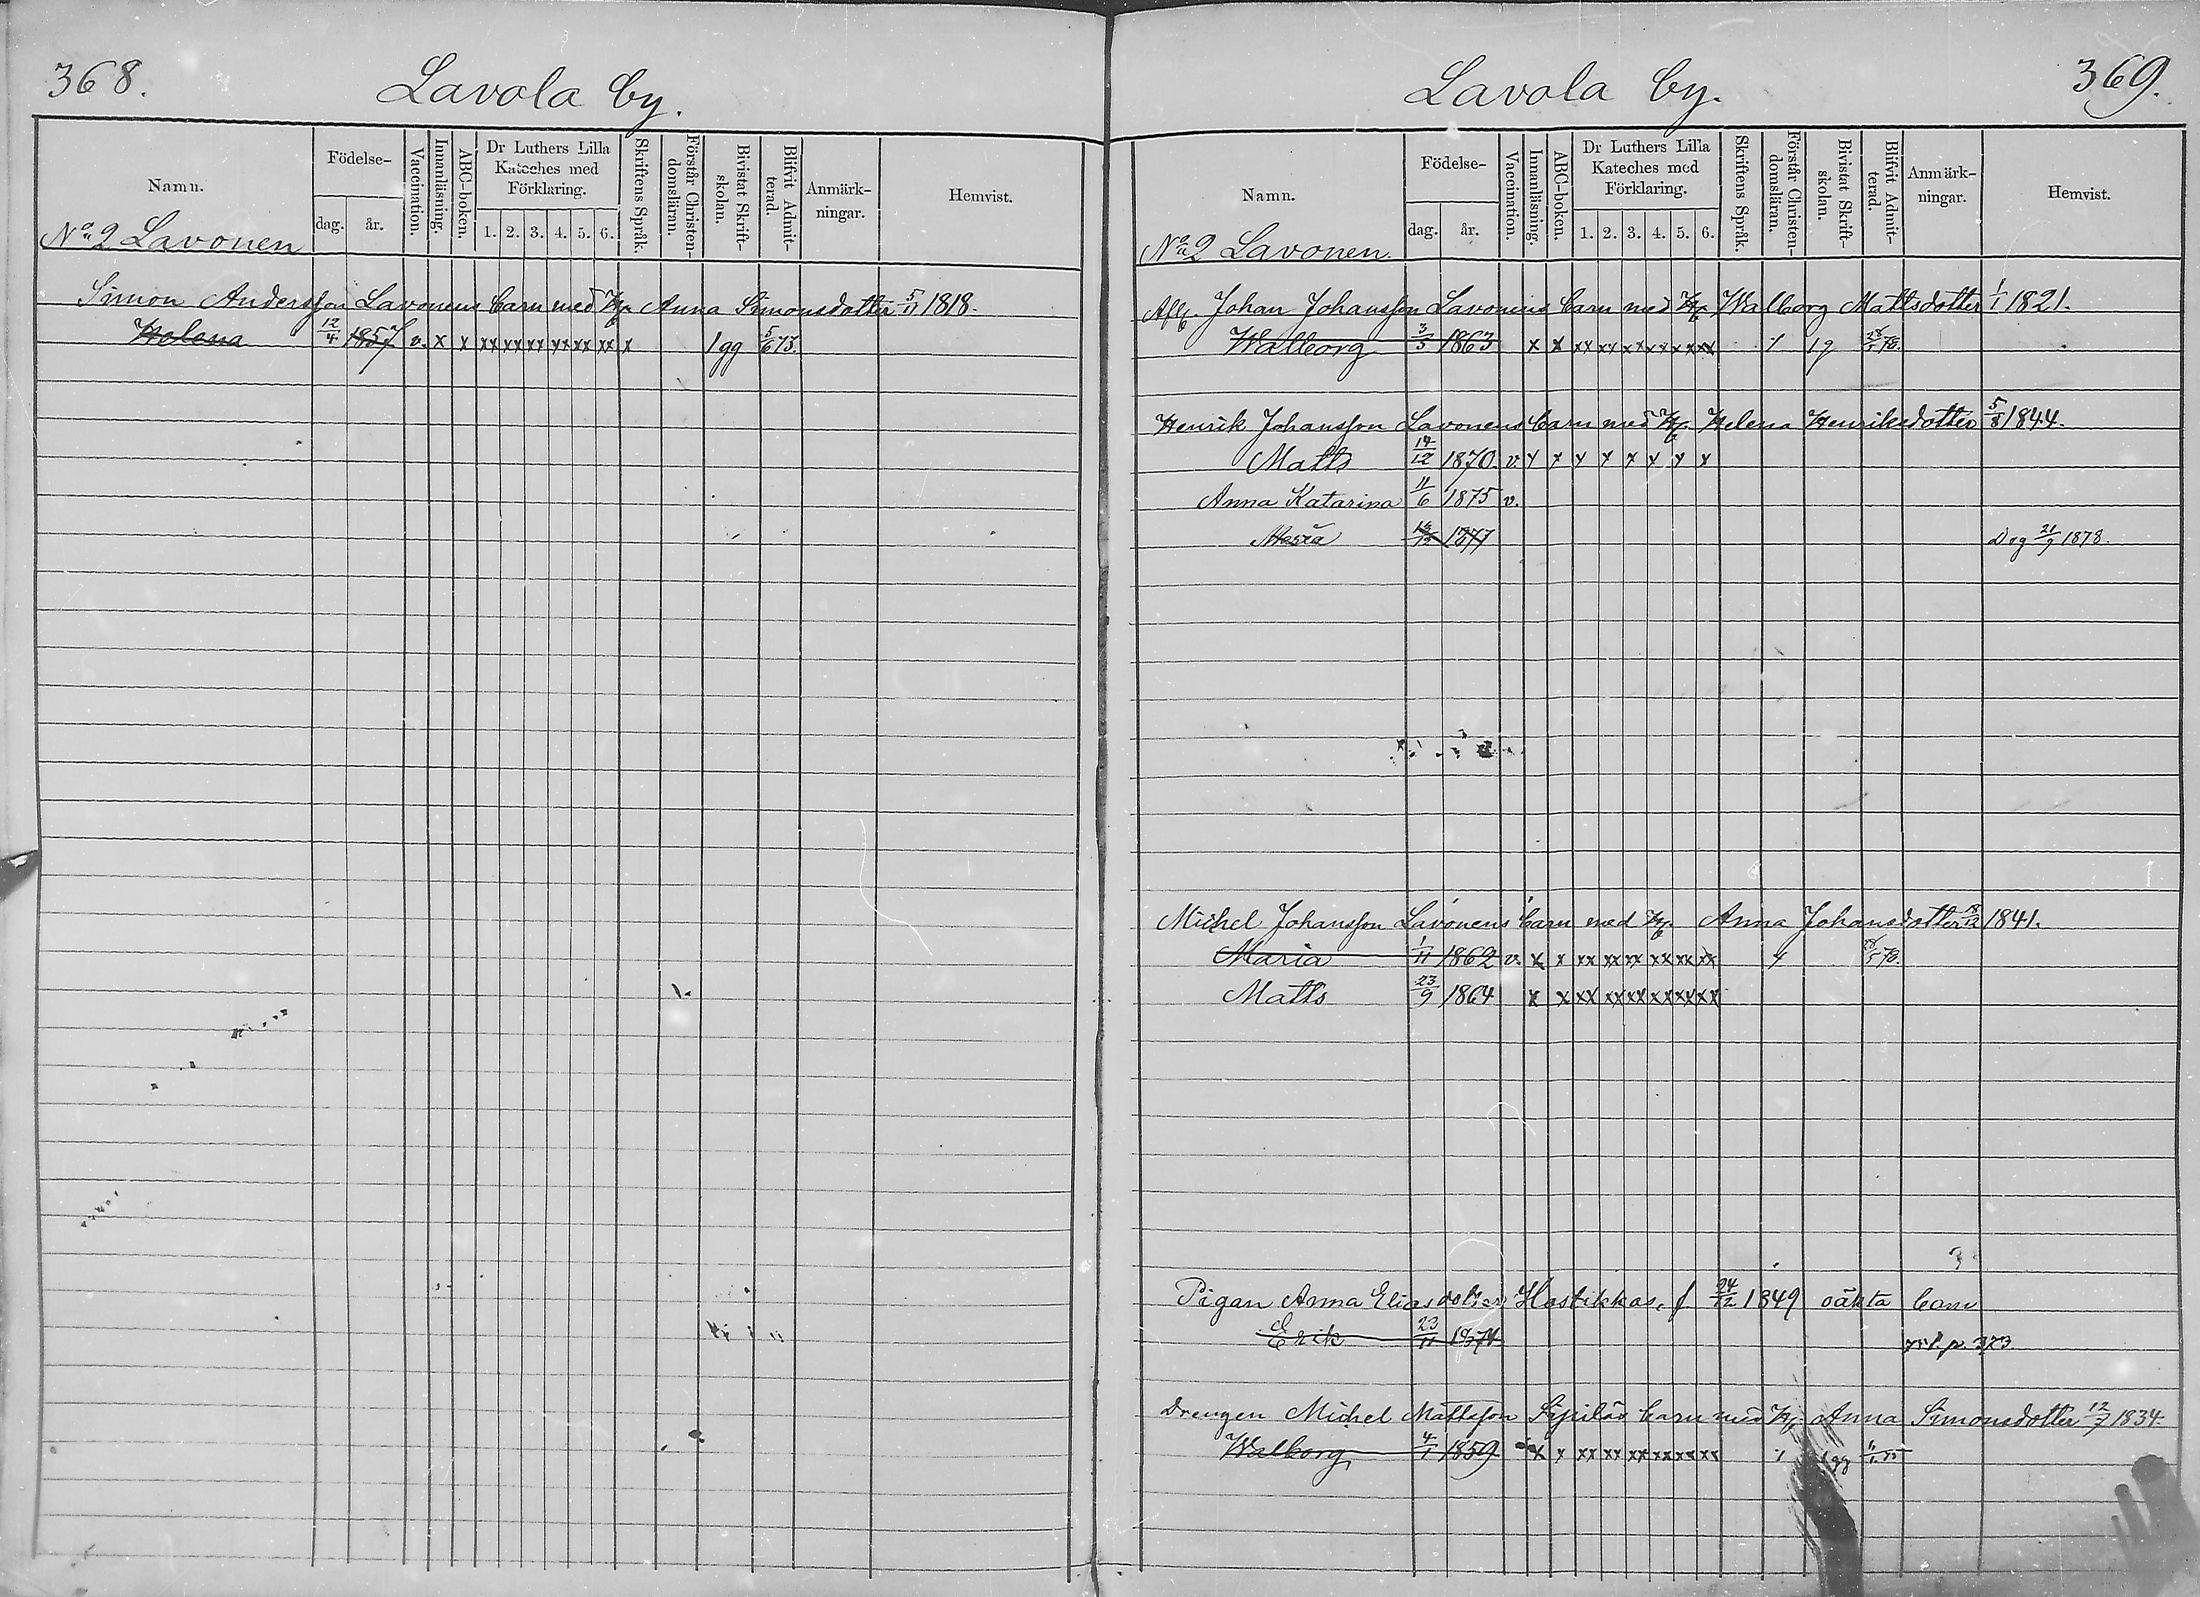 368.
Lavola by.
Namn.
Födelse-
dag. år.
Vaccination.
Innanläsning.
ABC-boken.
Dr Luthers Lilla
Kateches med
Förklaring.
1. 2. 3. 4. 5. 6.
Skriftens Språk.
Förstår Christen-
domsläran.
Bivistat Skrift-
skolan.
Blifvit Admit-
terad.
Anmärk-
ningar.
Hemvist.
No 2 Lavonen
Simon Andersson Lavonens barn med H. Anna Simonsdotter 5/11 1818.
Helena 12/4 1857 v. x x xx xx xx xx xx xx x 1 gg 5/6 73.
369.
Lavola by.
Namn.
Födelse-
dag. år.
Vaccination.
Innanläsning.
ABC-boken.
Dr Luthers Lilla
Kateches med
Förklaring.
1. 2. 3. 4. 5. 6.
Skriftens Språk.
Förstår Christen-
domsläran.
Bivistat Skrift-
skolan.
Blifvit Admit-
terad.
Anmärk-
ningar.
Hemvist.
No 2 Lavonen.
Afl. Johan Johansson Lavonens barn med H. Walborg Mattsdotter 1/1 1821.
Walborg 3/5 1863 x x xx xx xx xx xx xx 1g 78.
Henrik Johansson Lavonens barn med H. Helena Henriksdotter 5/8 1844.
Matts 14/12 1870. v. x x x x x x x x
Anna Katarina 11/6 1875 v.
Maria 1877 Dog 21/9 1878.
Michel Johansson Lavonens barn med H. Anna Johansdotter 1841.
Maria 1/11 1862 v. x x xx xx xx xx xx xx 78.
Matts 23/9 1864 x x xx xx xx xx xx xx
Pigan Anna Eliasdotter Hostikkas, f 24/12 1849 oäkta barn
Erik 23/11 1874 p. 373.
Drengen Michel Mattsson Sipiläs barn med H. Anna Simonsdotter 12/7 1834.
Walborg 4/1 1859. x x xx xx xx xx xx xx 1 gg